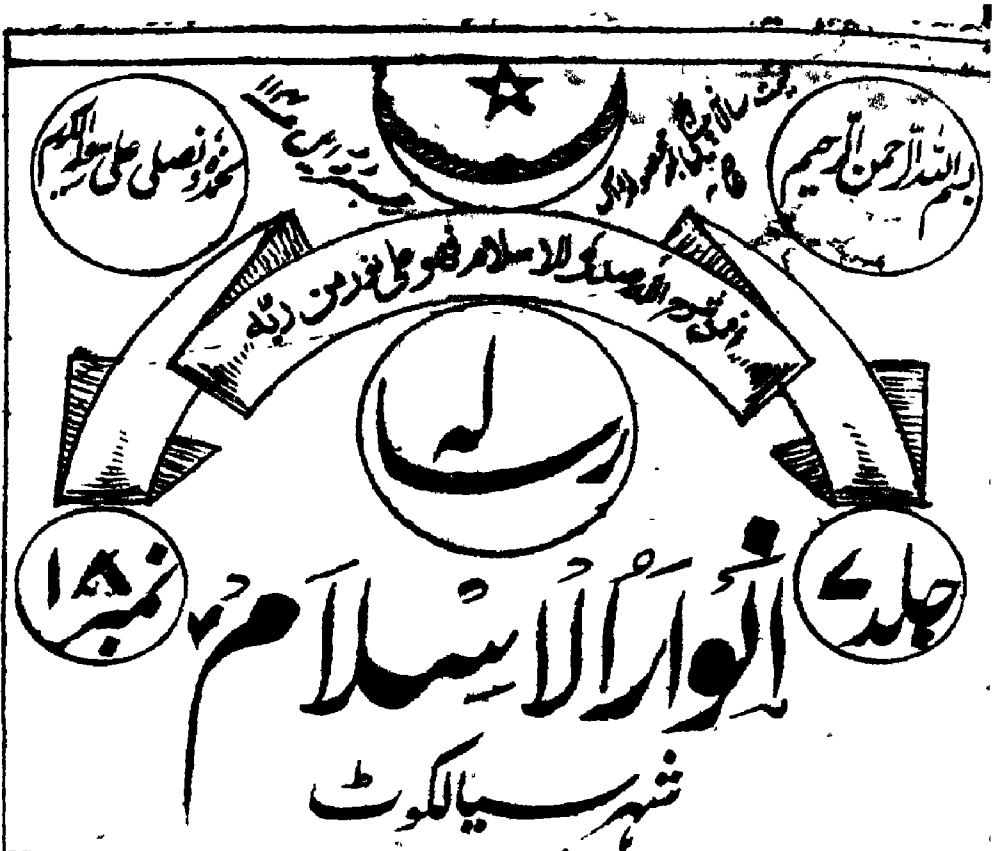 بسم اللہ الرحمن الرحیم
قیمت سالانہ پیشگی
نحمدہ و نصلی علی رسولہ الکریم
افمن شرح اللہ صدرہ للاسلام فھو علی نور من ربہ
رسالہ
جلد ۷
نمبر ۱۸
انوار الاسلام
شہر سیالکوٹ